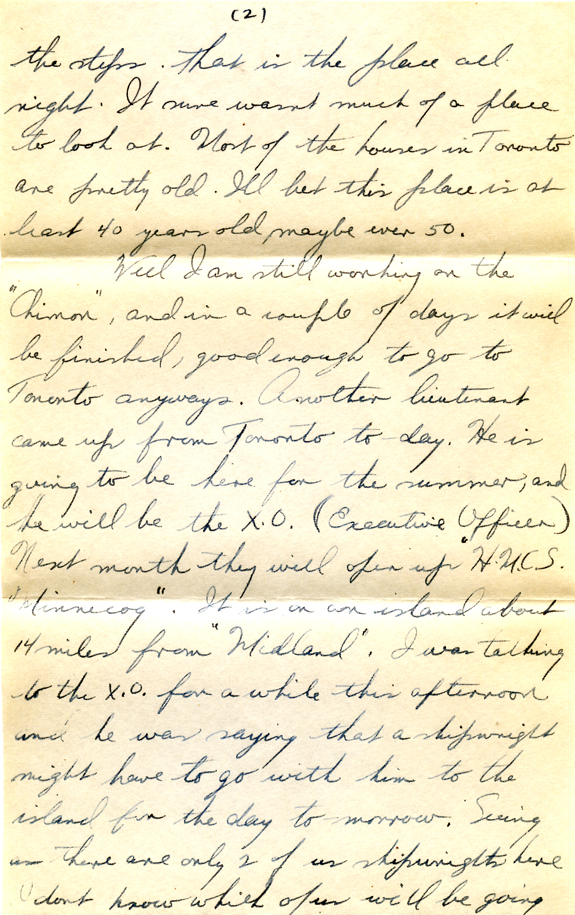 (2)
the steps. That is the place all
right. It sure wasnt much of a place
to look at. Most of the houses in Toronto
are pretty old. I'll bet this place is at
least 40 years old, maybe even 50.
Well I am still working on the
"Chimon", and in a couple of days it will
be finished, good enough to go to
Toronto anyways. Another lieutenant
came up from Toronto to-day. He is
going to be here for the summer, and
he will be the X.O. (Executive Officer)
Next month they will open up "H.M.C.S.
"Minnecog". It is on an island about
14 miles from "Midland". I was talking
to the X.O. for a while this afternoon
and he was saying that a shipwright
might have to go with him to the
island for the day to-morrow. Seeing
as there are only 2 of us shipwrights here
I dont know which of us will be going